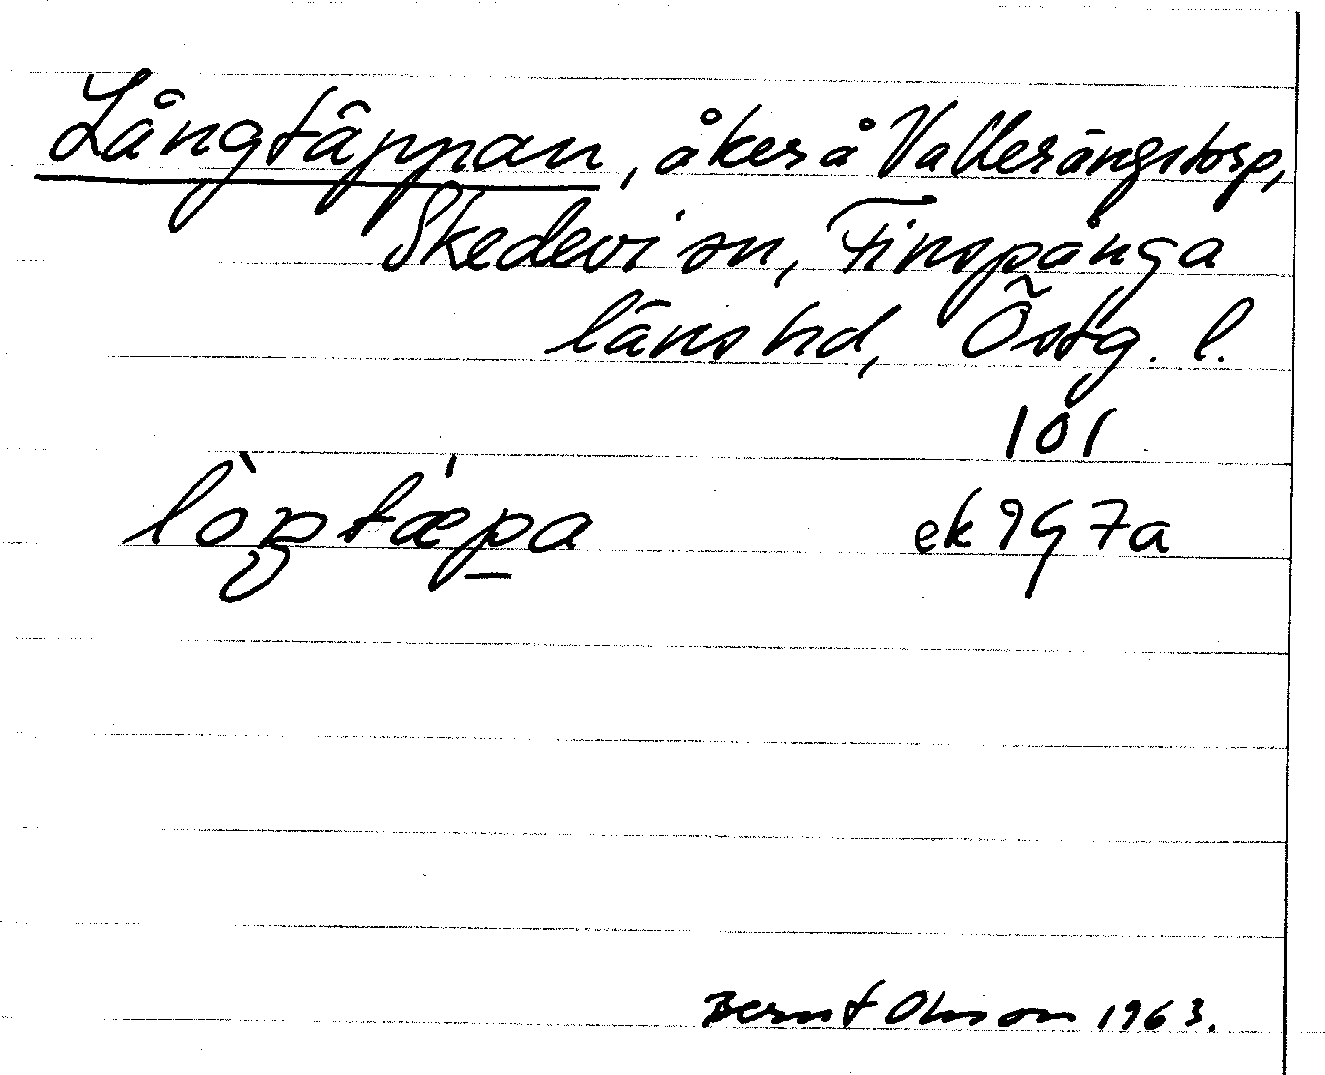 Långtäppan, åker å Vallerängstorp,
Skedevi sn, Finspånga
läns hd, Östg. l.
101
lòŋtæ̀pa ek 9G7a
Bernt Olsson 1963.